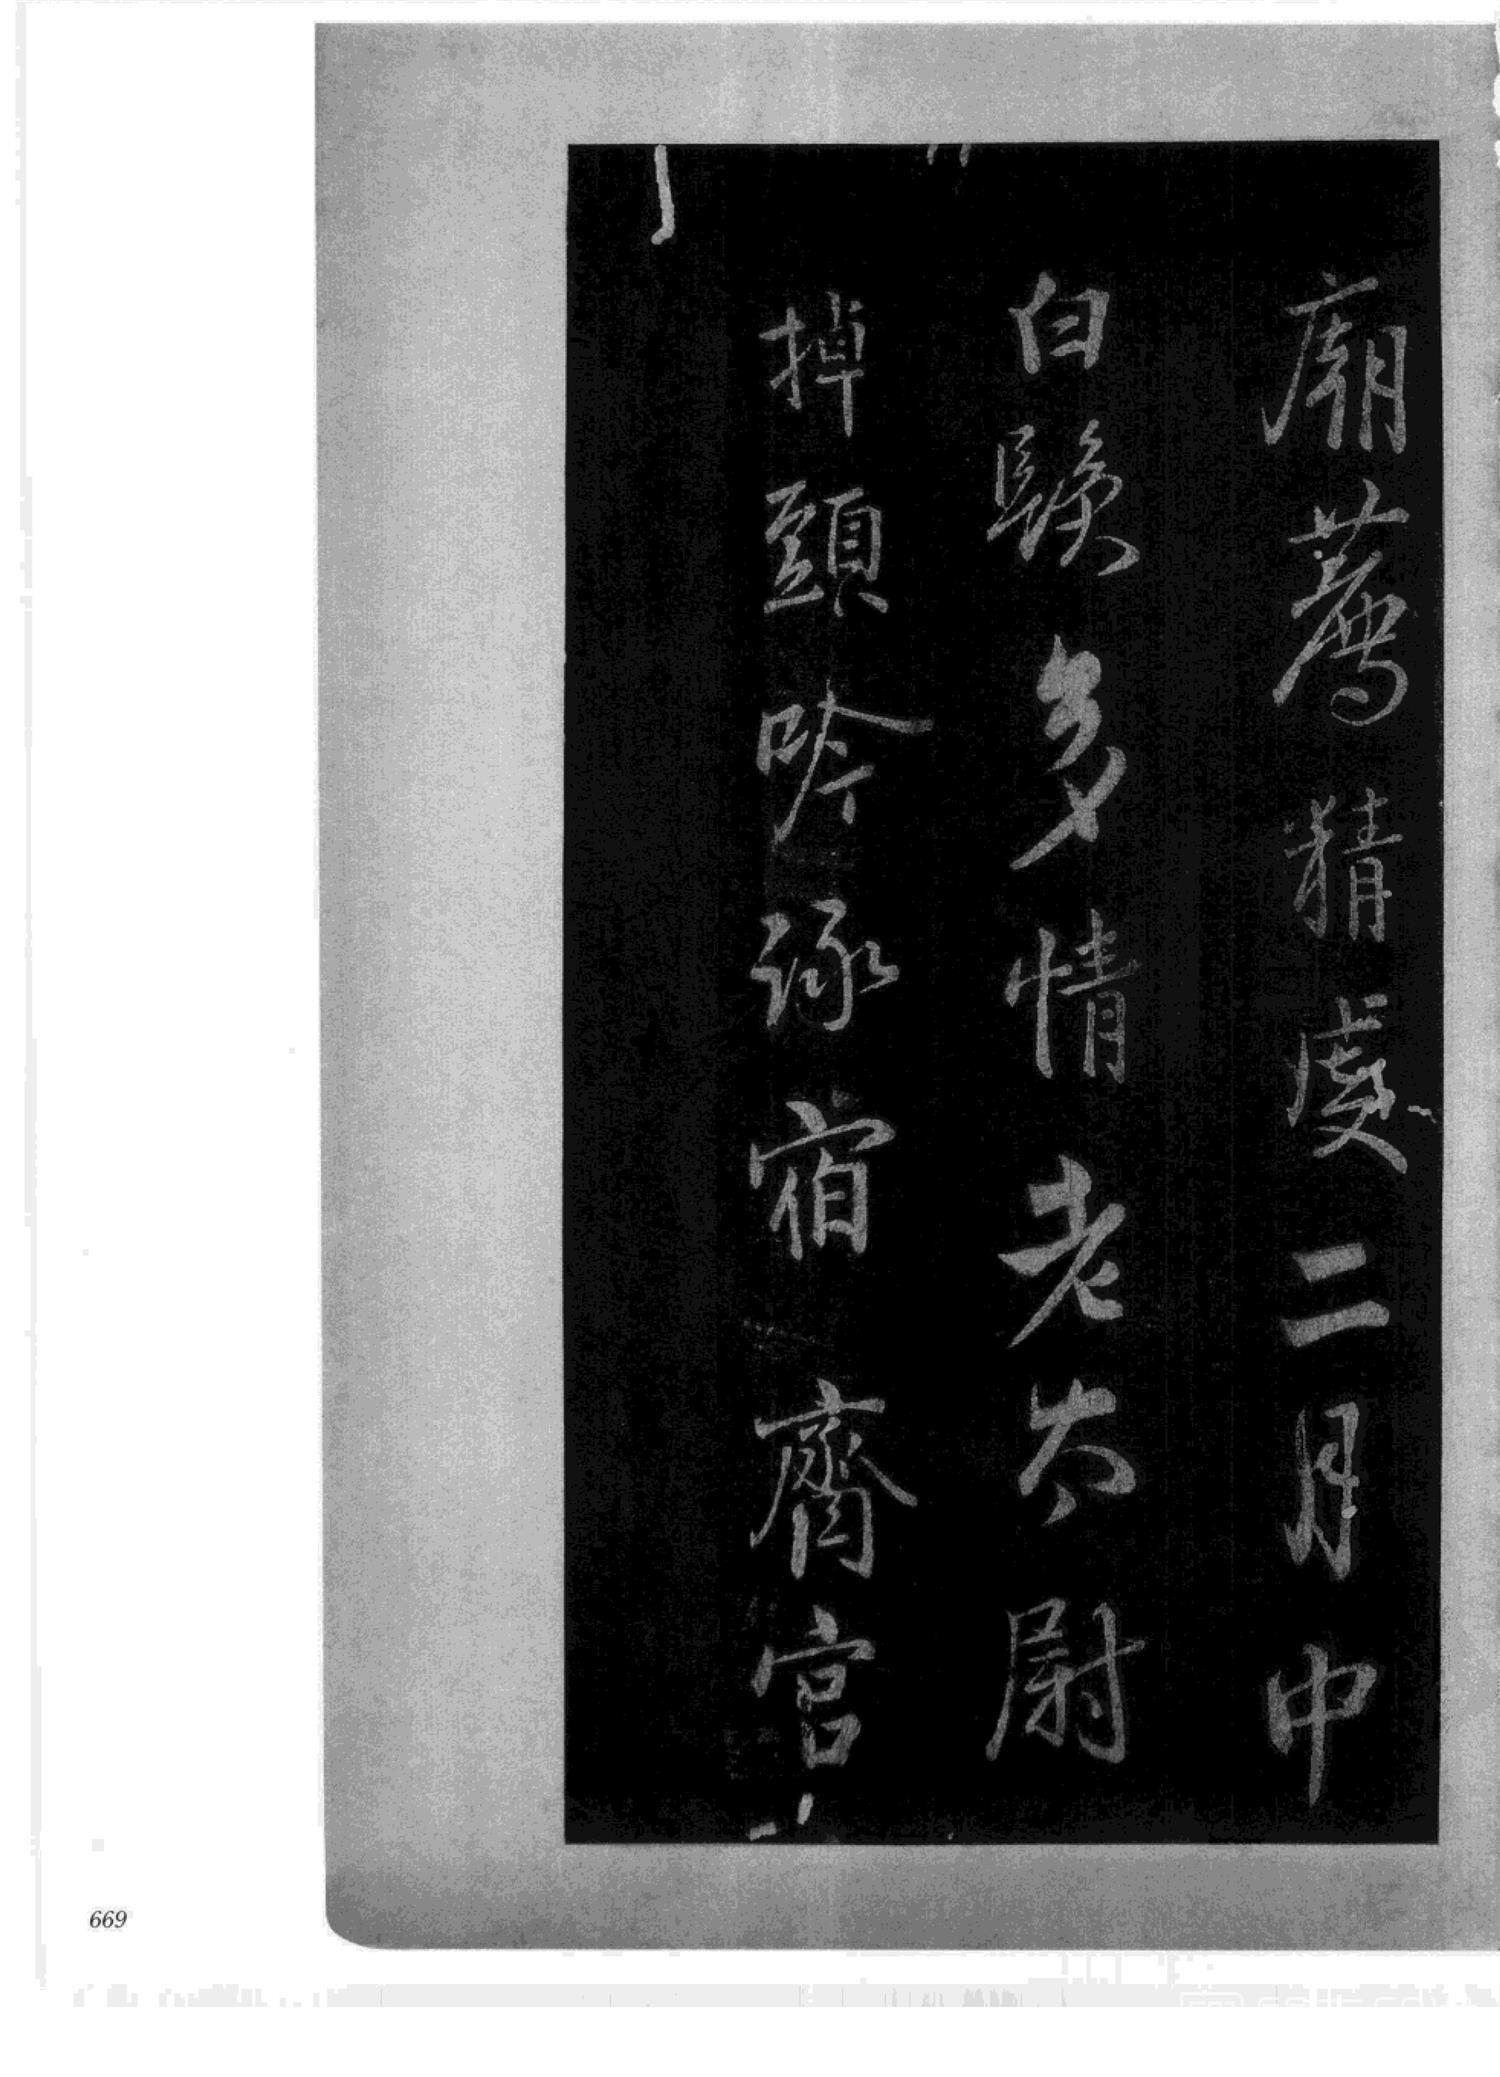 廟薦精虔二月中
白鬚多情老太尉
掉頭吟詠宿齋宮
669